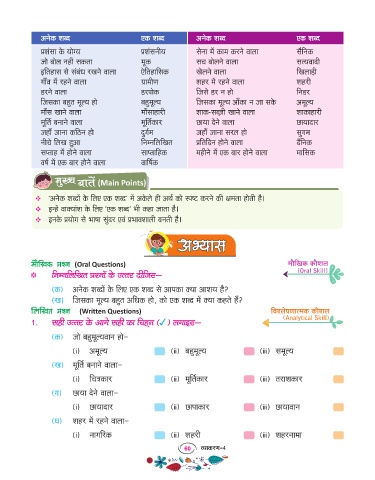 अनेक शब्द एक शब्द अनेक शब्द एक शब्द
प्रशंसा के योग्य प्रशंसनीय सेना में काम करने वाला सैनिक
जो बोल नहीं सकता मूक सच बोलने वाला सत्यवादी
इतिहास से संबंध रखने वाला ऐतिहासिक खेलने वाला खिलाड़ी
गाँव में रहने वाला ग्रामीण शहर में रहने वाला शहरी
डरने वाला डरपोक जिसे डर न हो निडर
जिसका बहुत मूल्य हो बहुमूल्य जिसका मूल्य आँका न जा सके अमूल्य
माँस खाने वाला माँसाहारी शाक-सब्ज़ी खाने वाला शाकाहारी
मूर्ति बनाने वाला मूर्तिकार छाया देने वाला छायादार
जहाँ जाना कठिन हो दुर्गम जहाँ जाना सरल हो सुगम
नीचे लिखा हुआ निम्नलिखित प्रतिदिन होने वाला दैनिक
सप्ताह में होने वाला साप्ताहिक महीने में एक बार होने वाला मासिक
वर्ष में एक बार होने वाला वार्षिक
मुख्य बातें (Main Points)
❖ 'अनेक शब्दों के लिए एक शब्द' में अकेले ही अर्थ को स्पष्ट करने की क्षमता होती है।
❖ इन्हें वाक्यांश के लिए 'एक शब्द' भी कहा जाता है।
❖ इनके प्रयोग से भाषा सुंदर एवं प्रभावशाली बनती है।
अभ्यास
मौखिक प्रश्न (Oral Questions) मौखिक कौशल
(Oral Skill)
निम्नलिखित प्रश्नों के उत्तर दीजिए–
(क) अनेक शब्दों के लिए एक शब्द से आपका क्या आशय है?
(ख) जिसका मूल्य बहुत अधिक हो, को एक शब्द में क्या कहते हैं?
लिखित प्रश्न (Written Questions) विश्लेषणात्मक कौशल
(Analytical Skill)
1. सही उत्तर के आगे सही का चिह्न (✓) लगाइए–
(क) जो बहुमूल्यवान हो–
(i) अमूल्य (ii) बहुमूल्य (iii) समूल्य
(ख) मूर्ति बनाने वाला–
(i) चित्रकार (ii) मूर्तिकार (iii) तराशकार
(ग) छाया देने वाला–
(i) छायादार (ii) छापाकार (iii) छायावान
(घ) शहर में रहने वाला–
(i) नागरिक (ii) शहरी (iii) शहरनामा
60 व्याकरण-4